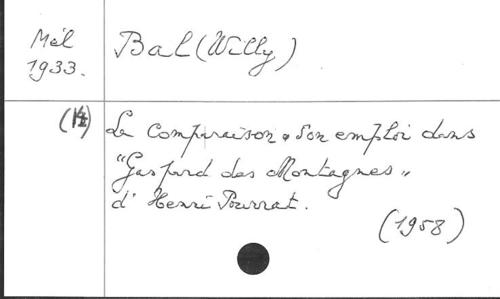 Mél
1933.
Bal (Willy)
La Comparaison & Son emploi dans
"Gaspard des Montagnes"
d' Henri Pourrat.
(1958)